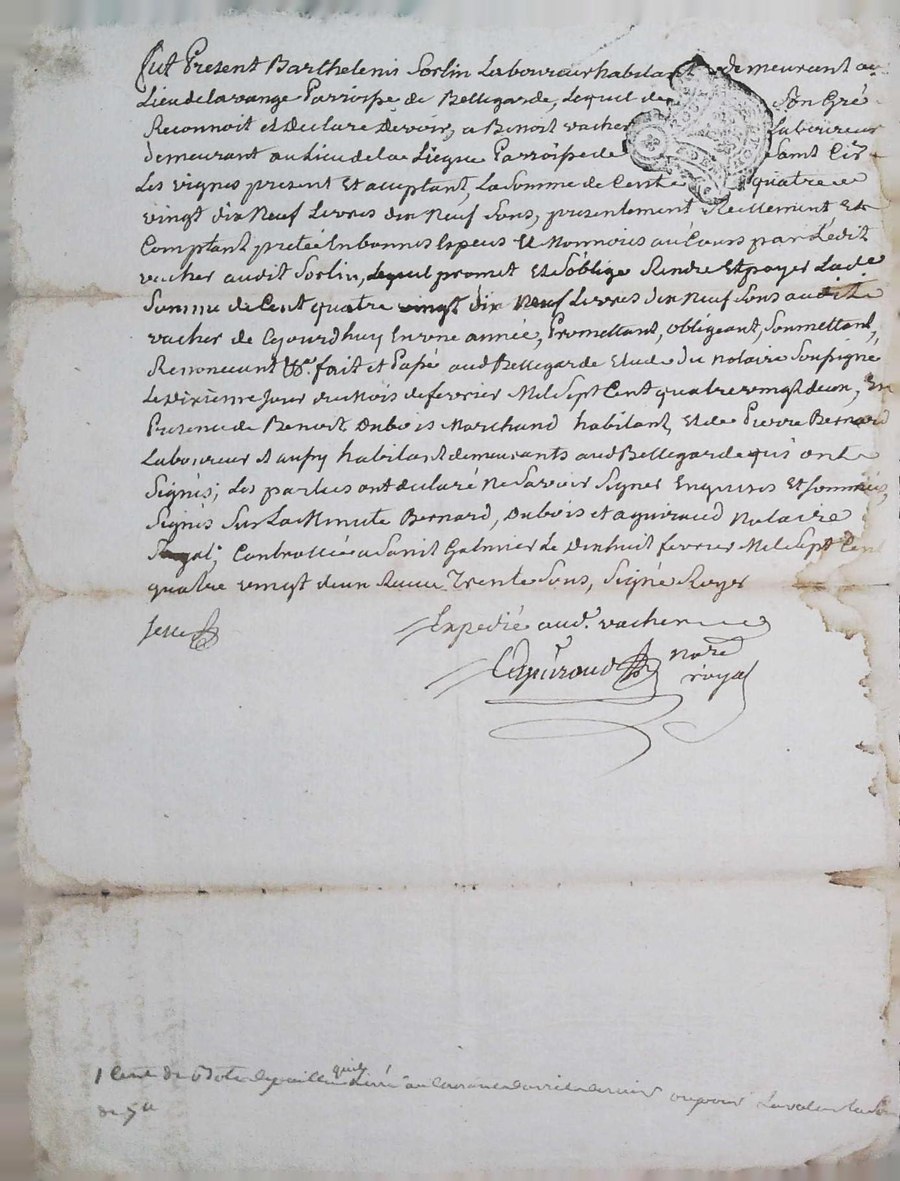 fut Present Barthelemis Sorlin Laboureur habitant demeurant au
Lieu de la vange Parroisse de Bellegarde, Lequel de Son Gré
Reconnoit et Declare Devoir, a Benoit vacher Laboureur
demeurant au Lieu de la Liegue Parroisse de Saint Cir
Les vignes present Et acceptant, La Somme de Cent quatre
vingt dix Neuf Livres dix Neuf Sons, presentement Reellement Et
Comptant pretée En bonnes Especes Et Monnoies au Cours par Ledit
vacher audit Sorlin, Lequel promet Et S'oblige Rendre Et payer Lade
Somme de Cent quatre vingt dix Neuf Livres dix Neuf Sons audit
vacher de Cejourdhuy En une année, Promettant, obligeant, Soummettant,
Renoncant &c. fait et Passé aud Bellegarde Etude du notaire Soussigné
Le dixieme Jour du Mois de fevrier Mil Sept Cent quatre vingt deux, En
Presence de Benoit Dubois Marchand habitant, Et de Pierre Bernard
Laboureur habitant demeurants aud Bellegarde qui ont
Signés; Les parties ont declaré Ne Savoir Signer Enquises Et Sommées,
Signés Sur La Minute Bernard, Dubois et aguiraud Notaire
Royal; Controllée a Saint Galmier Le Dixhuit fevrier Mil Sept Cent
quatre vingt deux Recu Trente Sons, Signé Royer
Expedié aud. vacher
nore
royal
1 Cent de
de 5